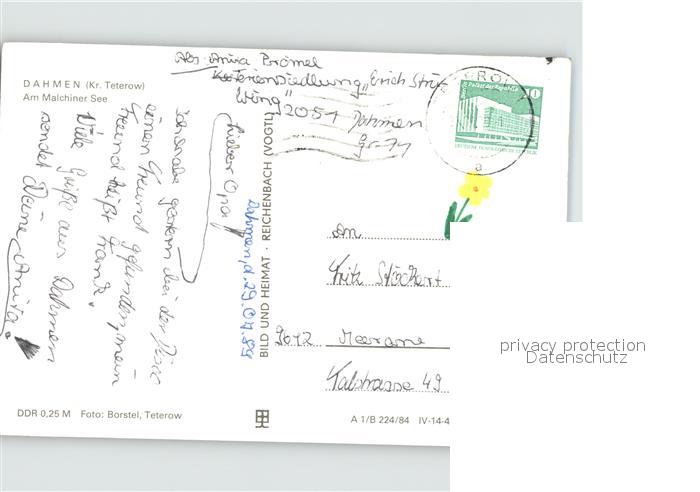 Abs. Anira Prömel
Feriensiedlung „Erich
2051 Dahmen
DAHMEN (Kr. Teterow)
Am Malchiner See
Lieber Opa,
ich habe gestern bei der Disco
einen Freund gefunden, mein
Freund heißt Frank.
Viele Grüße aus Dahmen
sendet Deine Anira.
Dahmen, d. 29.07.89
BILD UND HEIMAT · REICHENBACH (VOGTL)
Palast der Republik
10
DEUTSCHE DEMOKRATISCHE REPUBLIK
a
An
Fritz Stöckert
9612 Meerane
Talstrasse 49
DDR 0,25 M Foto: Borstel, Teterow
A 1/B 224/84 IV-14-4
privacy protection
Datenschutz